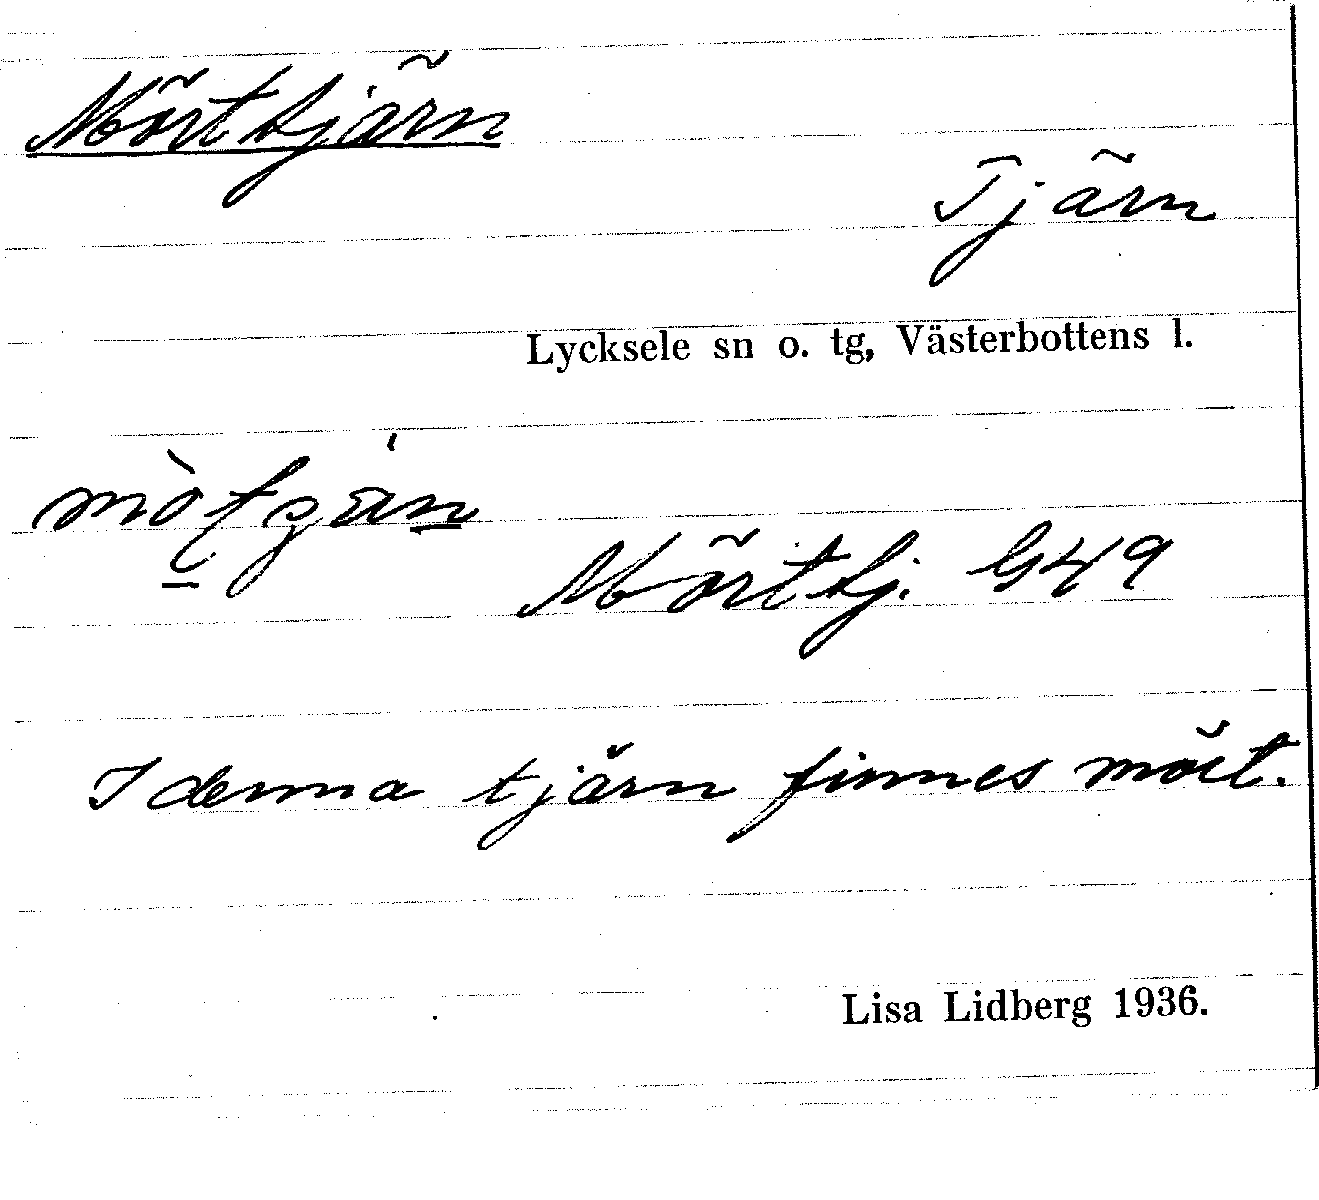 Mörttjärn
Tjärn
Lycksele sn o. tg, Västerbottens l.
Mörttj. G49
I denna tjärn finnes mört.
Lisa Lidberg 1936.